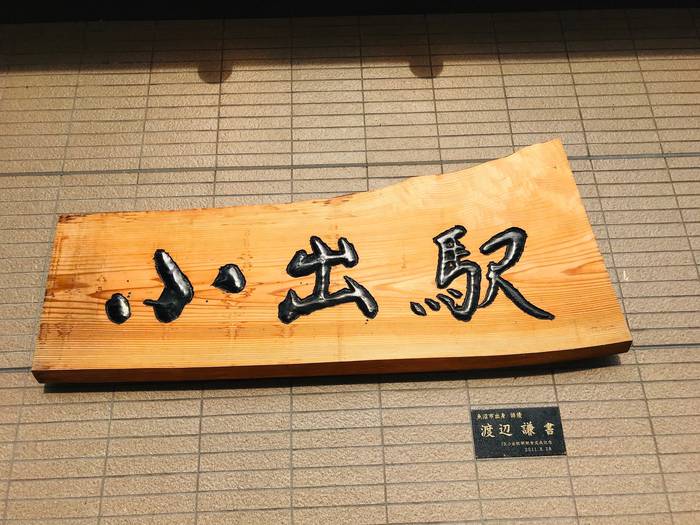 小出駅
魚沼市出身 俳優
渡辺 謙 書
2011.8.28